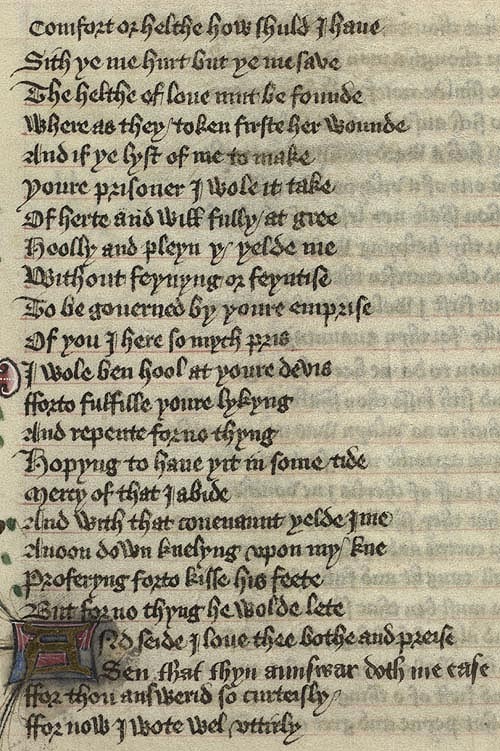 Comfort or helthe how shuld I haue
Sith ye me hurt but ye me saue
The helthe of loue mut be founde
Where as they token firste her wounde
And if ye lyst of me to make
Youre prisoner I wole it take
Of herte and will fully at gree
Hoolly and pleyn y yelde me
Without feynyng or feyntise
To be gouerned by youre emprise
Of you I here so mych pris
I wole ben hool at youre devis
fforto fulfille youre lykyng
And repente for no thyng
Hopyng to haue yit in some tide
Mercy of that I abide
And with that couenaunt yelde I me
Anoon down knelyng vpon my kne
Proferyng forto kisse his feete
But for no thyng he wolde lete
And seide I loue thee bothe and preise
Sen that thyn aunswar doth me ease
ffor thou answerid so curteisly
ffor now I wote wel vttirly